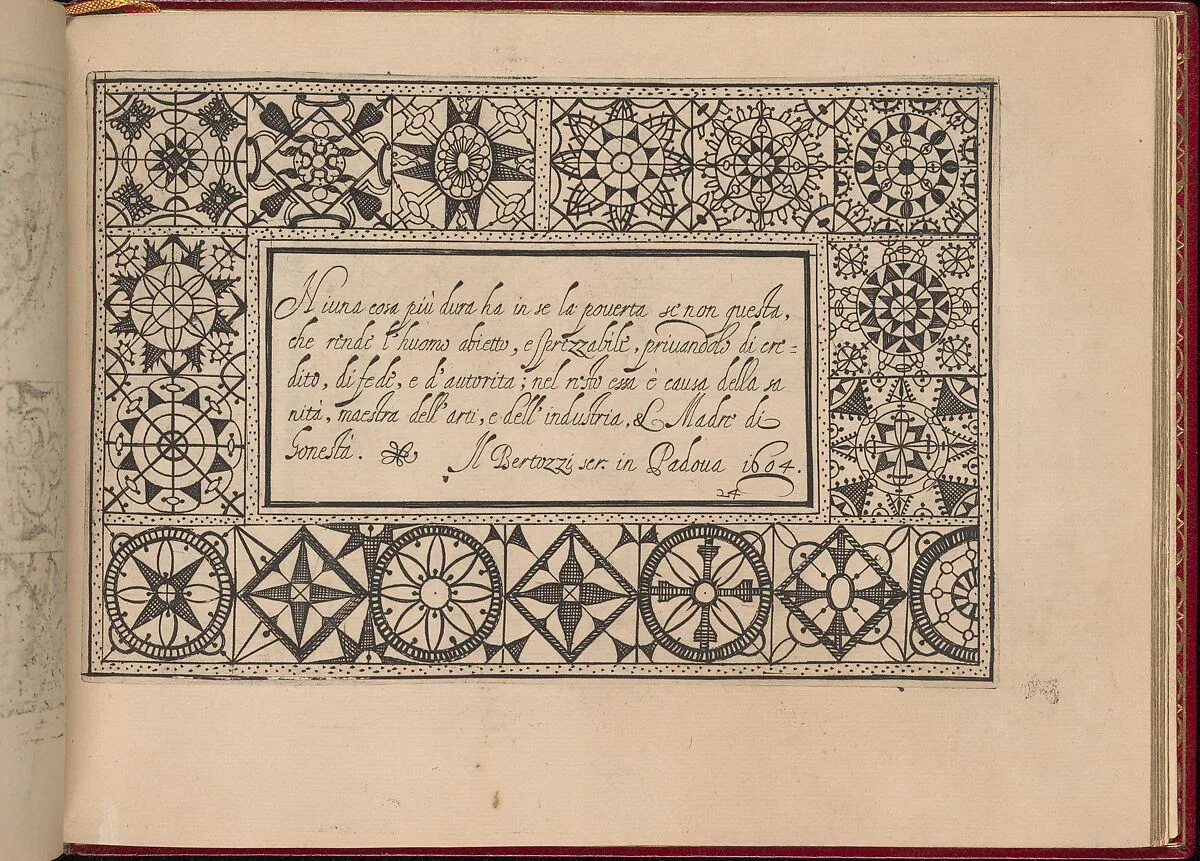 Niuna cosa più dura ha in se la pouerta se non questa,
che rende l'huomo abietto, e sprezzabile, priuandolo di cre=
dito, di fede, e d'autorita; nel resto essa è causa della sa
nità, maestra dell'arti, e dell'industria, & Madre di
honestà. Il Bertozzi ser. in Padoua 1604.
24